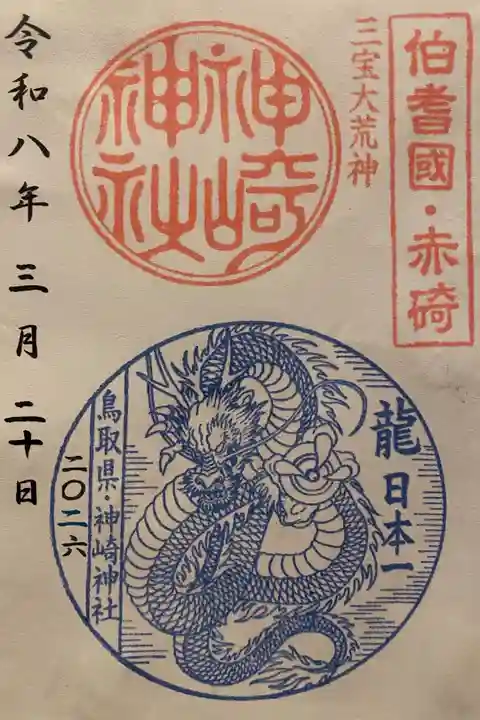 伯耆國・赤碕
三宝大荒神
神崎
神社
龍 日本一
鳥取県・神崎神社
二〇二六
令和八年 三月 二十日